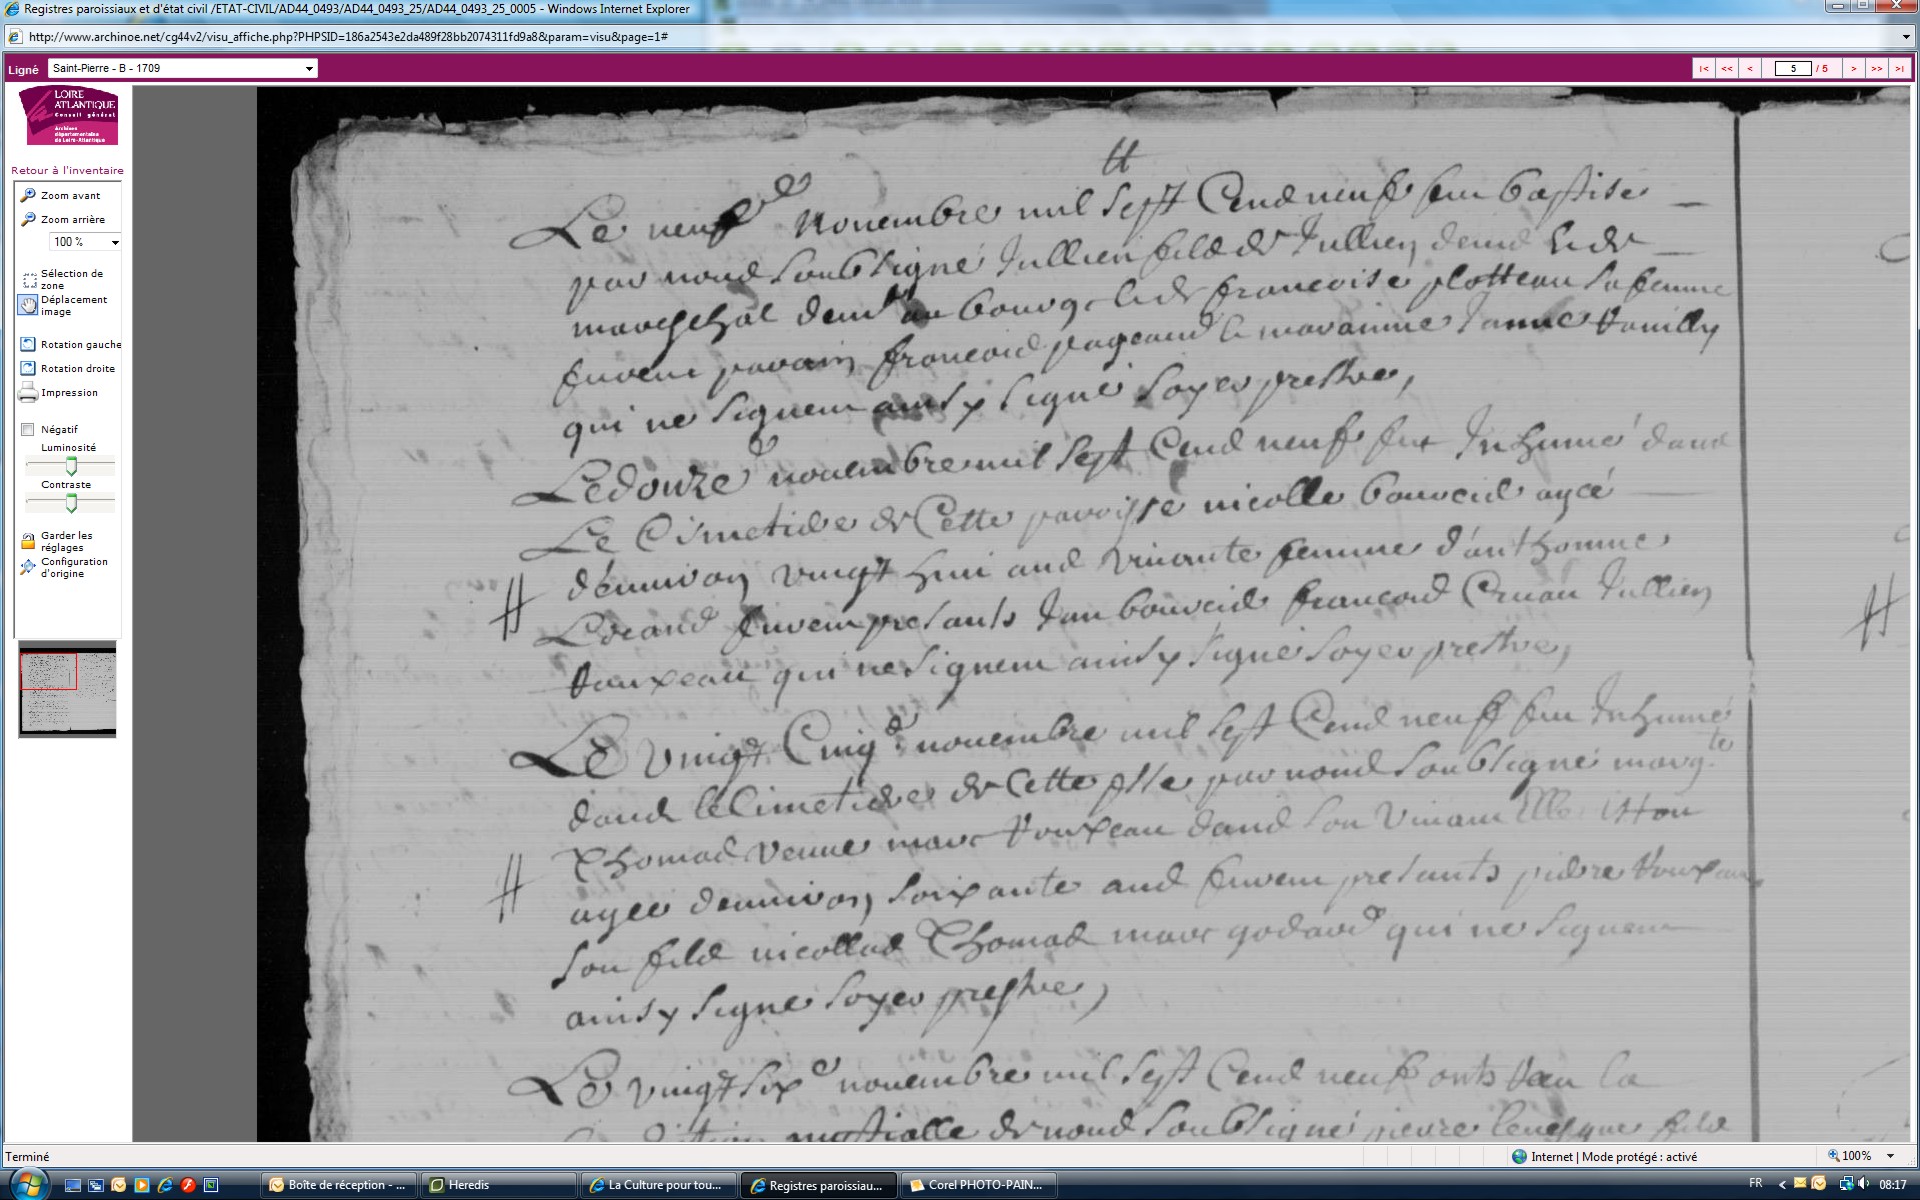 Registres paroissiaux et d'état civil /ETAT-CIVIL/AD44_0493/AD44_0493_25/AD44_0493_25_0005 - Windows Internet Explorer
http://www.archinoe.net/cg44v2/visu_affiche.php?PHPSID=186a2543e2da489f28bb2074311fd9a8&param=visu&page=1#
Ligné Saint-Pierre - B - 1709
|< << < 5 / 5 > >> >|
LOIRE
ATLANTIQUE
Conseil général
Archives
départementales
de Loire-Atlantique
Retour à l'inventaire
Zoom avant
Zoom arrière
100 %
Sélection de
zone
Déplacement
image
Rotation gauche
Rotation droite
Impression
Négatif
Luminosité
Contraste
Garder les
réglages
Configuration
d'origine
Le neufe novembre mil sept Cend neuf feu baptisé
par nous soubsigné Jullien fils de Jullien
mareschal demt au bourg & de francoise plotteau sa femme
furent parain francois pageaud & marainne Janne
qui ne signent ainsy signé Soyer prestre,
Le douze novembre mil sept Cend neuf fut Inhumé dans
Le Cimetiere de Cette paroisse nicolle bourcid agé
d'environ vingt huit ans vivante femme d'anthonne
furent presants Jan bourcid francois Jullien
touxeau qui ne signent ainsy signé Soyer prestre,
Le vingt Cinqe novembre mil sept Cend neuf feu Inhumé
dans le Cimetiere de Cette psse par nous soubsigné margte
Thomas veuve marc touxeau dans son vivant Elle
agee d'environ soixante ans furent presants pierre touxeau
son fils nicollas Thomas marc godard qui ne signent
ainsy signé Soyer prestre,
Le vingt sixe novembre mil sept Cend neuf onts la
nuptialle de nous soubsigné pierre levesque fils
Terminé
Internet | Mode protégé : activé
100%
Boîte de réception - ...
Heredis
La Culture pour tou...
Registres paroissiau...
Corel PHOTO-PAIN...
FR
08:17